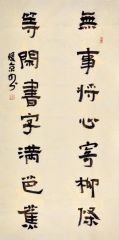 無事將心寄柳條
等閑書字滿芭蕉